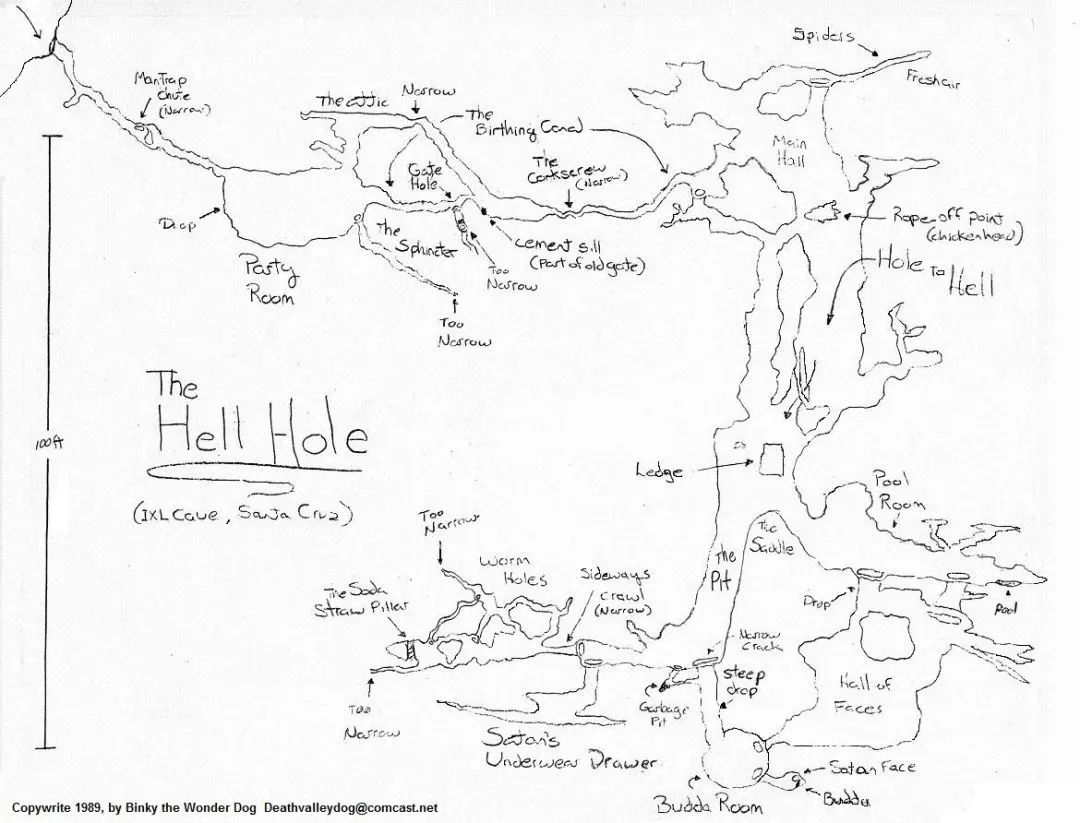 Spiders
Fresh air
ManTrap
Chute
(Narrow)
The attic
Narrow
The
Birthing Canal
Main
Hall
Gate
Hole
The
Corkscrew
(Narrow)
Drop
The
Sphincter
Cement sill
(Part of old gate)
Rope-off point
(chickenhead)
Hole To
Hell
Party
Room
Too
Narrow
Too
Narrow
The
Hell Hole
(IXL Cave, Santa Cruz)
100ft
Ledge
Pool
Room
Too
Narrow
Worm
Holes
The Soda
Straw Piller
Sideways
Crawl
(Narrow)
The
Pit
The
Saddle
Drop
Pool
Narrow
Crack
Steep
drop
Garbage
Pit
Hall of
Faces
Too
Narrow
Satan's
Underwear Drawer
Satan Face
Budda
Budda Room
Copywrite 1989, by Binky the Wonder Dog Deathvalleydog@comcast.net